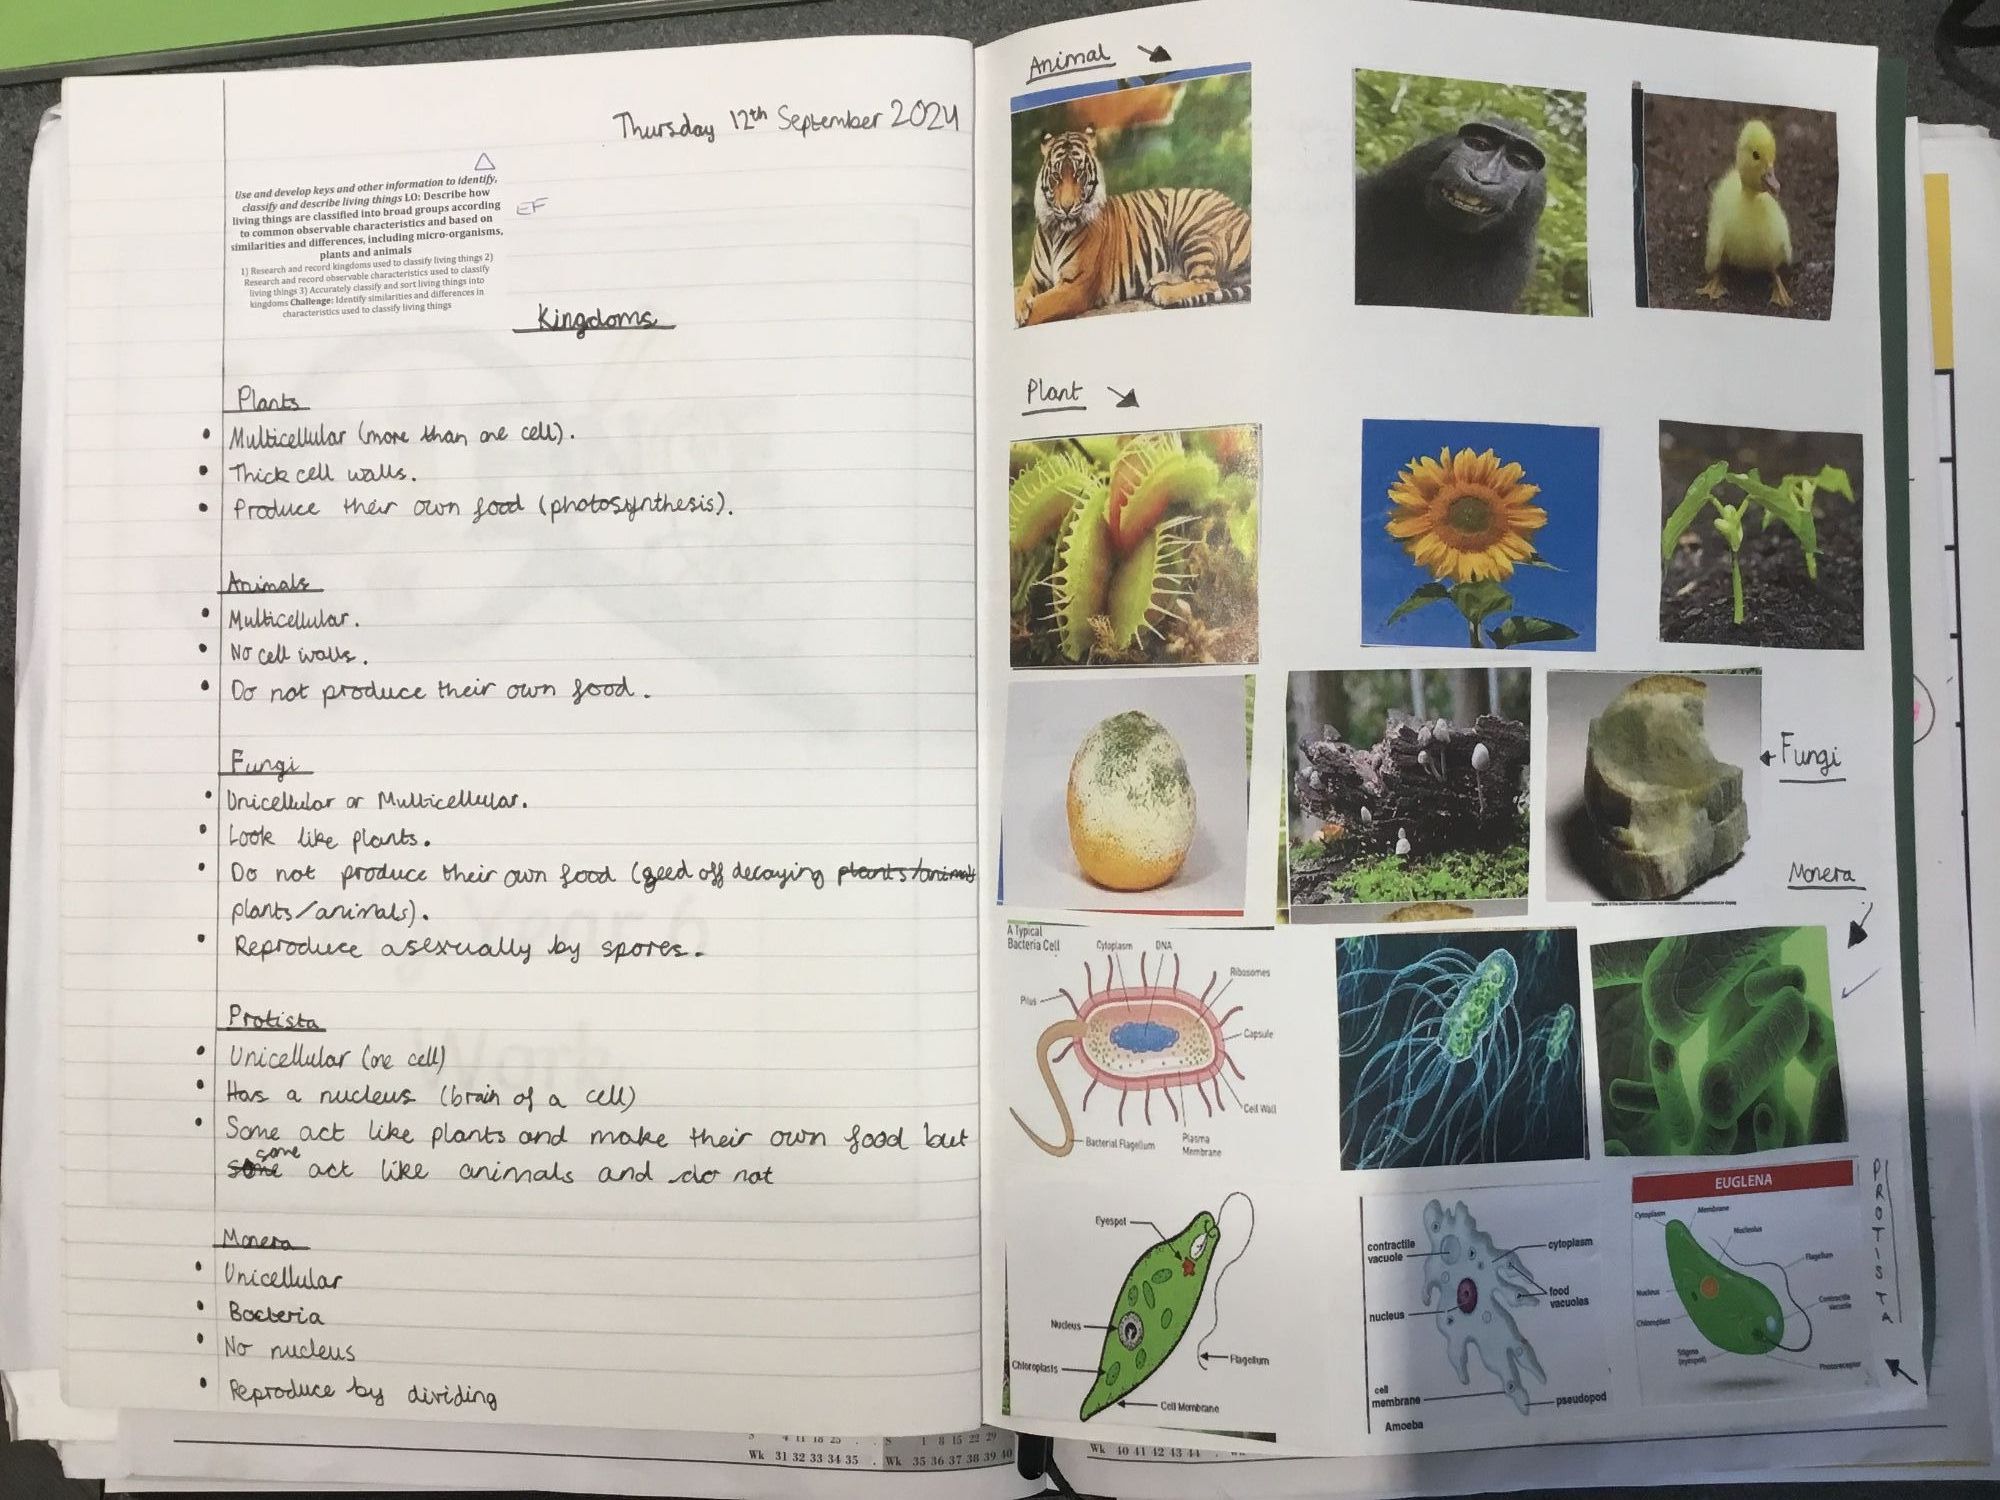 Thursday 12th September 2024
Use and develop keys and other information to identify,
classify and describe living things LO: Describe how
living things are classified into broad groups according
to common observable characteristics and based on
similarities and differences, including micro-organisms,
plants and animals
1) Research and record kingdoms used to classify living things 2)
Research and record observable characteristics used to classify
living things 3) Accurately classify and sort living things into
kingdoms Challenge: Identify similarities and differences in
characteristics used to classify living things
EF
Kingdoms
Plants
• Multicellular (more than one cell).
• Thick cell walls.
• Produce their own food (photosynthesis).
Animals
• Multicellular.
• No cell walls.
• Do not produce their own food.
Fungi
• Unicellular or Multicellular.
• Look like plants.
• Do not produce their own food (geed off decaying plants/animals
plants/animals).
• Reproduce asexually by spores.
Protista
• Unicellular (one cell)
• Has a nucleus (brain of a cell)
• Some act like plants and make their own food but
some
some act like animals and do not
Monera
• Unicellular
• Bacteria
• No nucleus
• Reproduce by dividing
Animal
Plant
Fungi
Monera
A Typical
Bacteria Cell
Cytoplasm
DNA
Ribosomes
Pilus
Capsule
Cell Wall
Bacterial Flagellum
Plasma
Membrane
PROTISTA
Eyespot
Nucleus
Chloroplasts
Flagellum
Cell Membrane
contractile
vacuole
cytoplasm
food
vacuoles
nucleus
cell
membrane
pseudopod
Amoeba
EUGLENA
Cytoplasm
Membrane
Nucleolus
Flagellum
Nucleus
Contractile
vacuole
Chloroplast
Stigma
(eyespot)
Photoreceptor
Wk 31 32 33 34 35
S 1 8 15 22 29
Wk 35 36 37 38 39 40
Wk 40 41 42 43 44